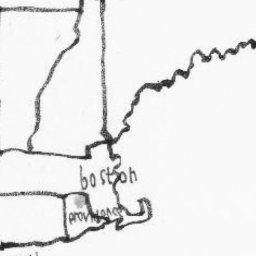 boston
providence